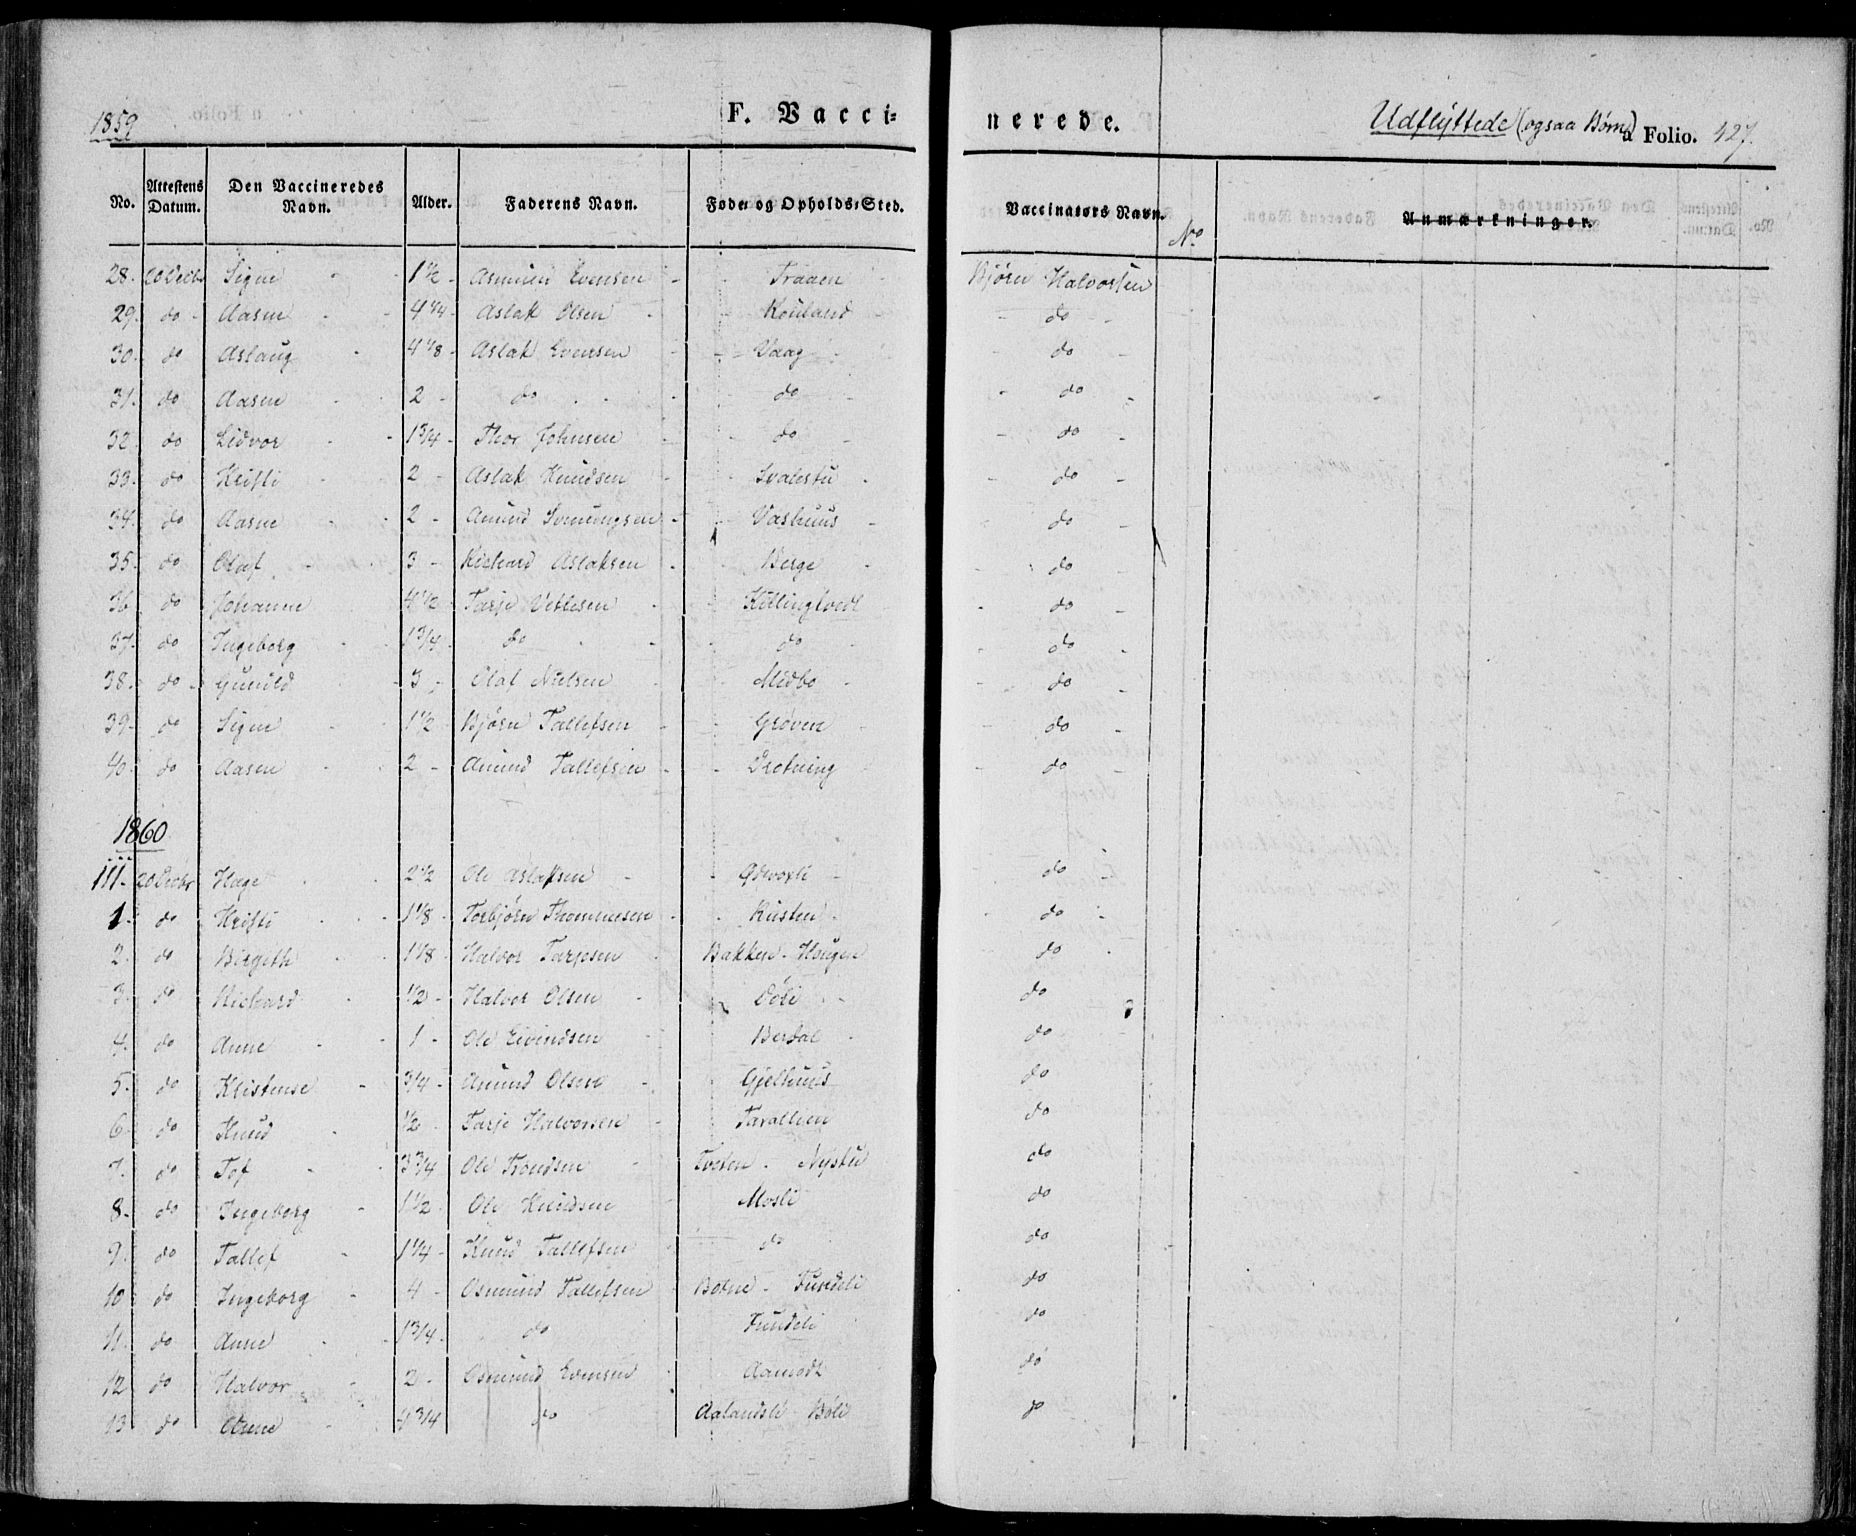 1859 F. Vacci= nerede. Udflyttede (ogsaa Børn) a Folio. 427.
No. Attestens Datum. Den Vaccineredes Navn. Alder. Faderens Navn. Føde= og Opholds=Sted. Vaccinators Navn. No Anmærkninger.
28. 20 Decbr Signe 1 1/2 Asmund Evensen Traaen Bjørn Halvorsen
29. do Aasne 4 1/4 Aslak Olsen Rouland do
30. do Aslaug 4 1/8 Aslak Evensen Vaag do
31. do Aasne 2 do do do
32. do Lidvor 1 3/4 Thor Johnsen do do
33. do Kristi 2 Aslak Knudsen Svalestu do
34. do Aasne 2 Amund Vashuus do
35. do Oluf 3 Richard Aslaksen Berge do
36 do Johanne 4 1/2 Tarje Vetlesen Killingtvedt do
37. do Ingeborg 1 3/4 do do do
38. do Gunild 3 Olaf Nielsen Midbø do
39. do Signe 1 1/2 Bjørn Tallefsen Grøven do
40. do Aasne 2 Amund Tallefsen Drotning do
1860
111. 20 Decbr Hæge 2 1/2 Ole Aslaksen do
1. do Kristi 1 1/8 Torbjørn Thommesen Rusten do
2. do Birgith 1 1/8 Halvor Tarjesen Bakken - Haugen do
3. do Richard 1/2 Halvor Olsen Døli do
4. do Anne 1 Ole Eivindsen Berdal do
5. do Kristense 3/4 Amund Olsen Gjelhuus do
6. do Knud 1/2 Tarje Halvorsen Tavallien do
7. do Tof 3 3/4 Ole Trondsen Tveten - Nystu do
8. do Ingeborg 1 1/2 Ole Knudsen Mosli do
9. do Tallef 1 1/4 Knud Tallefsen do do
10 do Ingeborg 4 Osmund Tallefsen Botne - Fundeli do
11. do Anne 1 3/4 do Fundeli do
12 do Halvor 2 Osmund Evensen Aamodt do
13 do Anne 4 3/4 do Aalandsli Bøli do